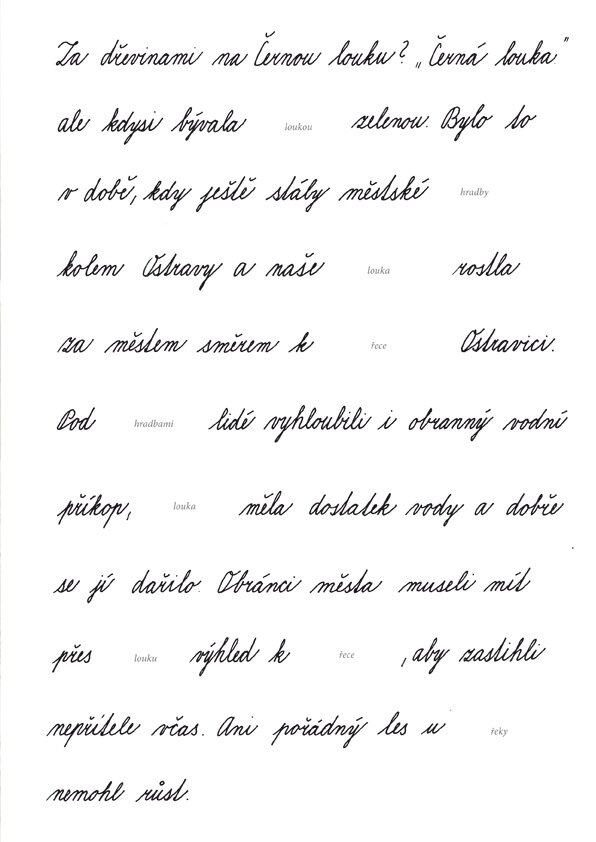 Za dřevinami na Černou louku? „Černá louka"
ale kdysi bývala loukou zelenou. Bylo to
v době, kdy ještě stály městské hradby
kolem Ostravy a naše louka rostla
za městem směrem k řece Ostravici.
Pod hradbami lidé vyhloubili i obranný vodní
příkop, louka měla dostatek vody a dobře
se jí dařilo. Obránci města museli mít
přes louku výhled k řece , aby zastihli
nepřítele včas. Ani pořádný les u řeky
nemohl růst.